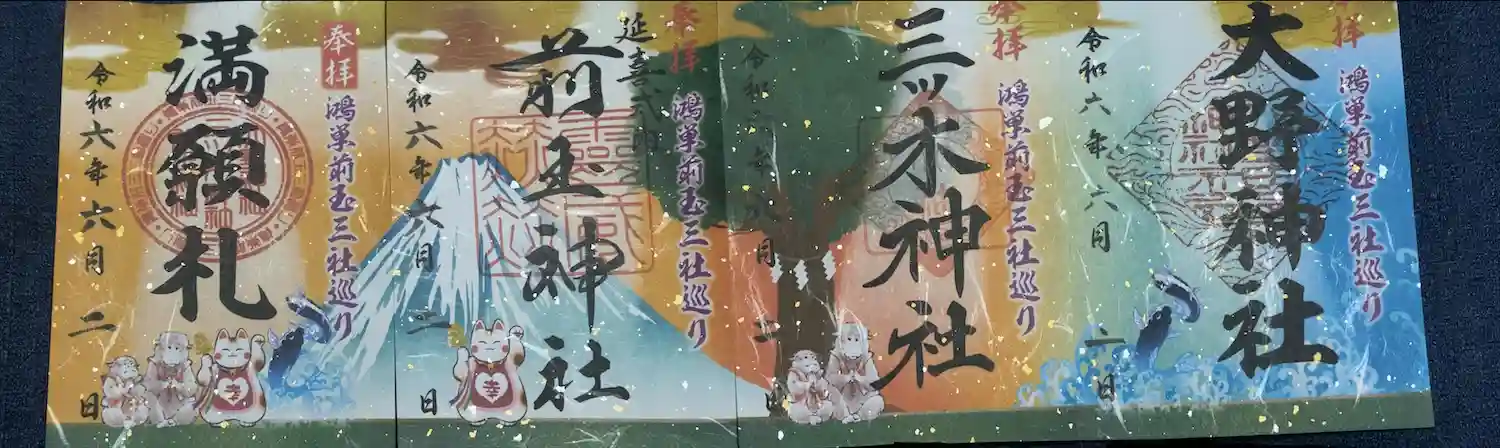 奉拝
鴻巣前玉三社巡り
大野神社
令和六年六月二日
奉拝
鴻巣前玉三社巡り
三ツ木神社
令和六年六月二日
奉拝
鴻巣前玉三社巡り
延喜式内
前玉神社
令和六年六月二日
幸
奉拝
鴻巣前玉三社巡り
満願札
令和六年六月二日
幸